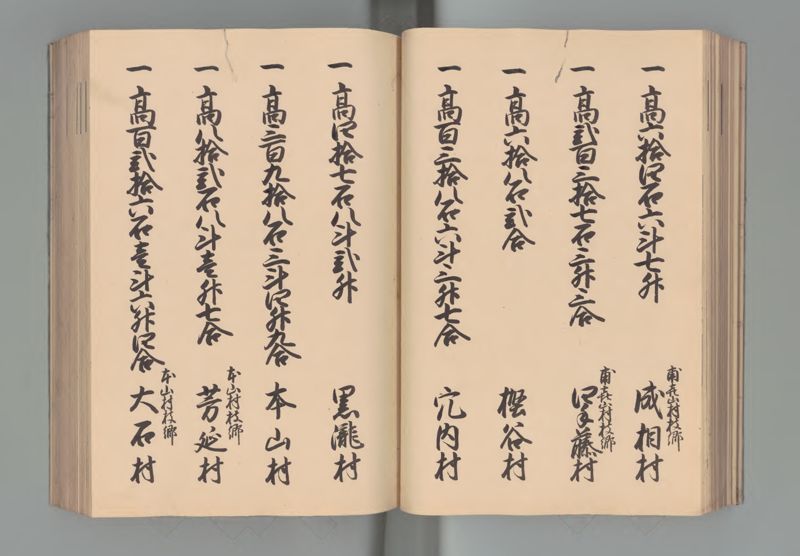 一 髙六拾四石六斗七升
甫喜山村枝郷
成相村
一 髙弐百三拾七石三升三合
甫喜山村枝郷
四手藤村
一 髙六拾八石弐合
樫谷村
一 髙百三拾八石六斗三升七合
穴内村
一 髙四拾七石八斗弐升
黒瀧村
一 髙三百九拾八石三斗四升九合
本山村
一 髙八拾弐石八斗壱升七合
本山村枝郷
芳延村
一 髙百弐拾六石壱斗六升四合
本山村枝郷
大石村